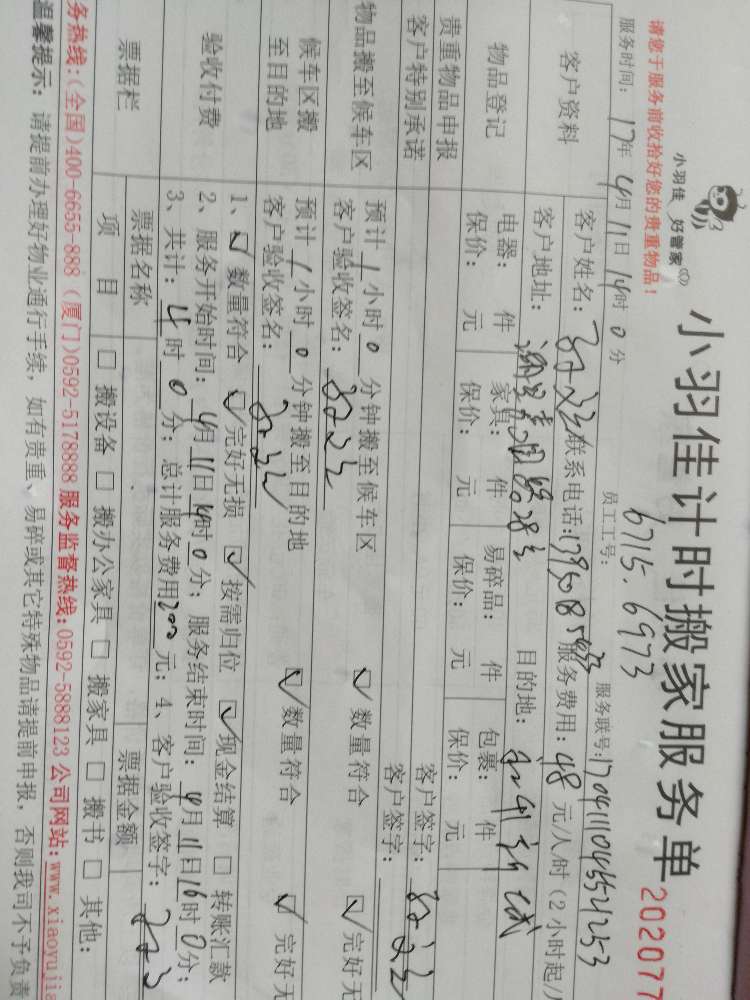 小羽佳计时搬家服务单
202077
小羽佳 好管家
请您于服务前收拾好您的贵重物品!
员工工号: 6715.6973
服务时间: 17年4月11日14时0分
服务联号:
客户资料
客户姓名: 联系电话: 服务费用: 48元/人/时(2小时起/
客户地址: 目的地:
物品登记
电器: 件 家具: 件 易碎品: 件 包裹: 件
保价: 元 保价: 元 保价: 元 保价: 元
贵重物品申报 客户签字:
客户特别承诺 客户签字:
物品搬至候车区
预计1小时0分钟搬至候车区 ☑数量符合 ☑完好无
客户验收签名:
候车区搬至目的地
预计1小时0分钟搬至目的地 ☑数量符合 ☑完好无
客户验收签名:
验收付费
1、☑数量符合 ☑完好无损 ☑按需归位 ☑现金结算 □转账汇款
2、服务开始时间: 4月11日14时0分; 服务结束时间: 4月11日16时0分;
3、共计: 4时0分; 总计服务费用200元; 4、客户验收签字:
票据栏
票据名称 票据金额
项目 □搬设备 □搬办公家具 □搬家具 □搬书 □其他:
务热线:(全国)400-6655-888 (厦门)0592-5178888 服务监督热线:0592-5888123 公司网站:www.xiaoyujia
温馨提示: 请提前办理好物业通行手续, 如有贵重、易碎或其它特殊物品请提前申报, 否则我司不予负责